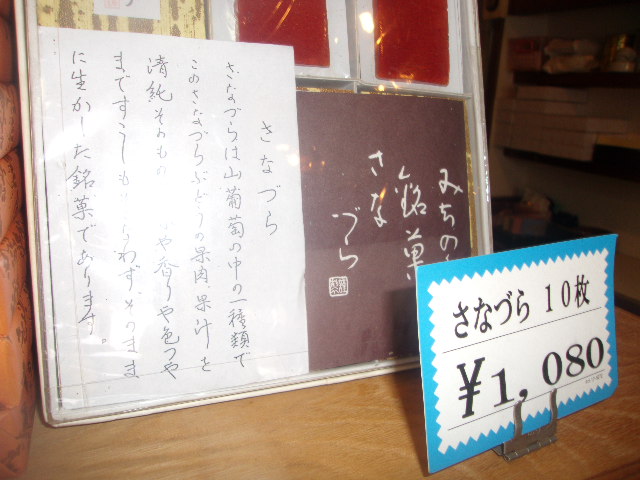 さなづら
さなづらは山葡萄の中の一種類で
このさなづらぶどうの果肉、果汁を
清純そのもの や香りや色つや
まですこしも わず、そのまま
に生かした銘菓であります。
みちの
銘菓
さな
づら
さなづら 10枚
¥1,080